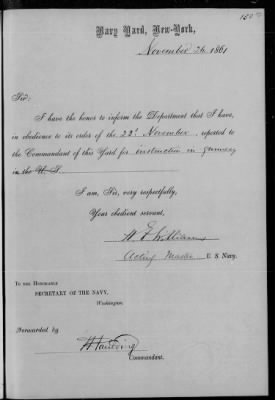 Navy Yard, New-York,
November 26 1861
Sir:
I have the honor to inform the Department that I have,
in obedience to its order of the 22d November, reported
to the Commandant of this Yard for instruction in gunnery
in the U. S.
I am, Sir, very respectfully,
Your obedient servant,
Williams
Acting Master U. S. Navy.
To the Honorable
SECRETARY OF THE NAVY,
Washington.
Forwarded by
H Paulding
Commandant.